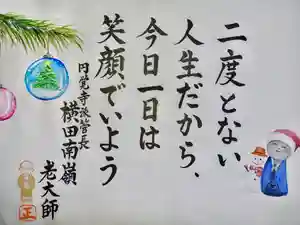 二度とない
人生だから、
今日一日は
笑顔でいよう
円覚寺派管長
横田南嶺
老大師
正